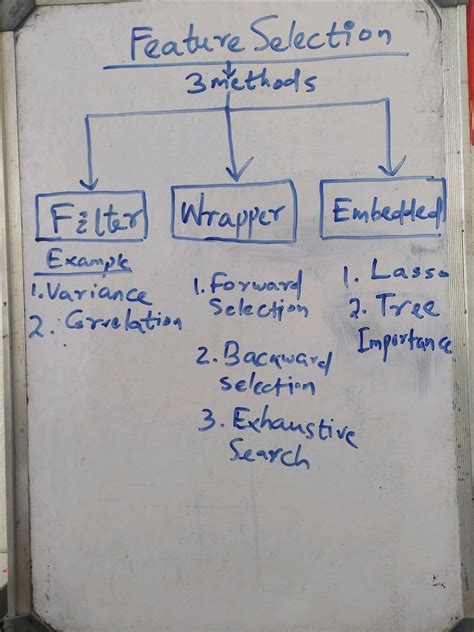 Feature Selection
3 methods
Filter
Wrapper
Embedded
Example
1. Variance
2. Correlation
1. Forward
Selection
2. Backward
Selection
3. Exhaustive
Search
1. Lasso
2. Tree
Importance